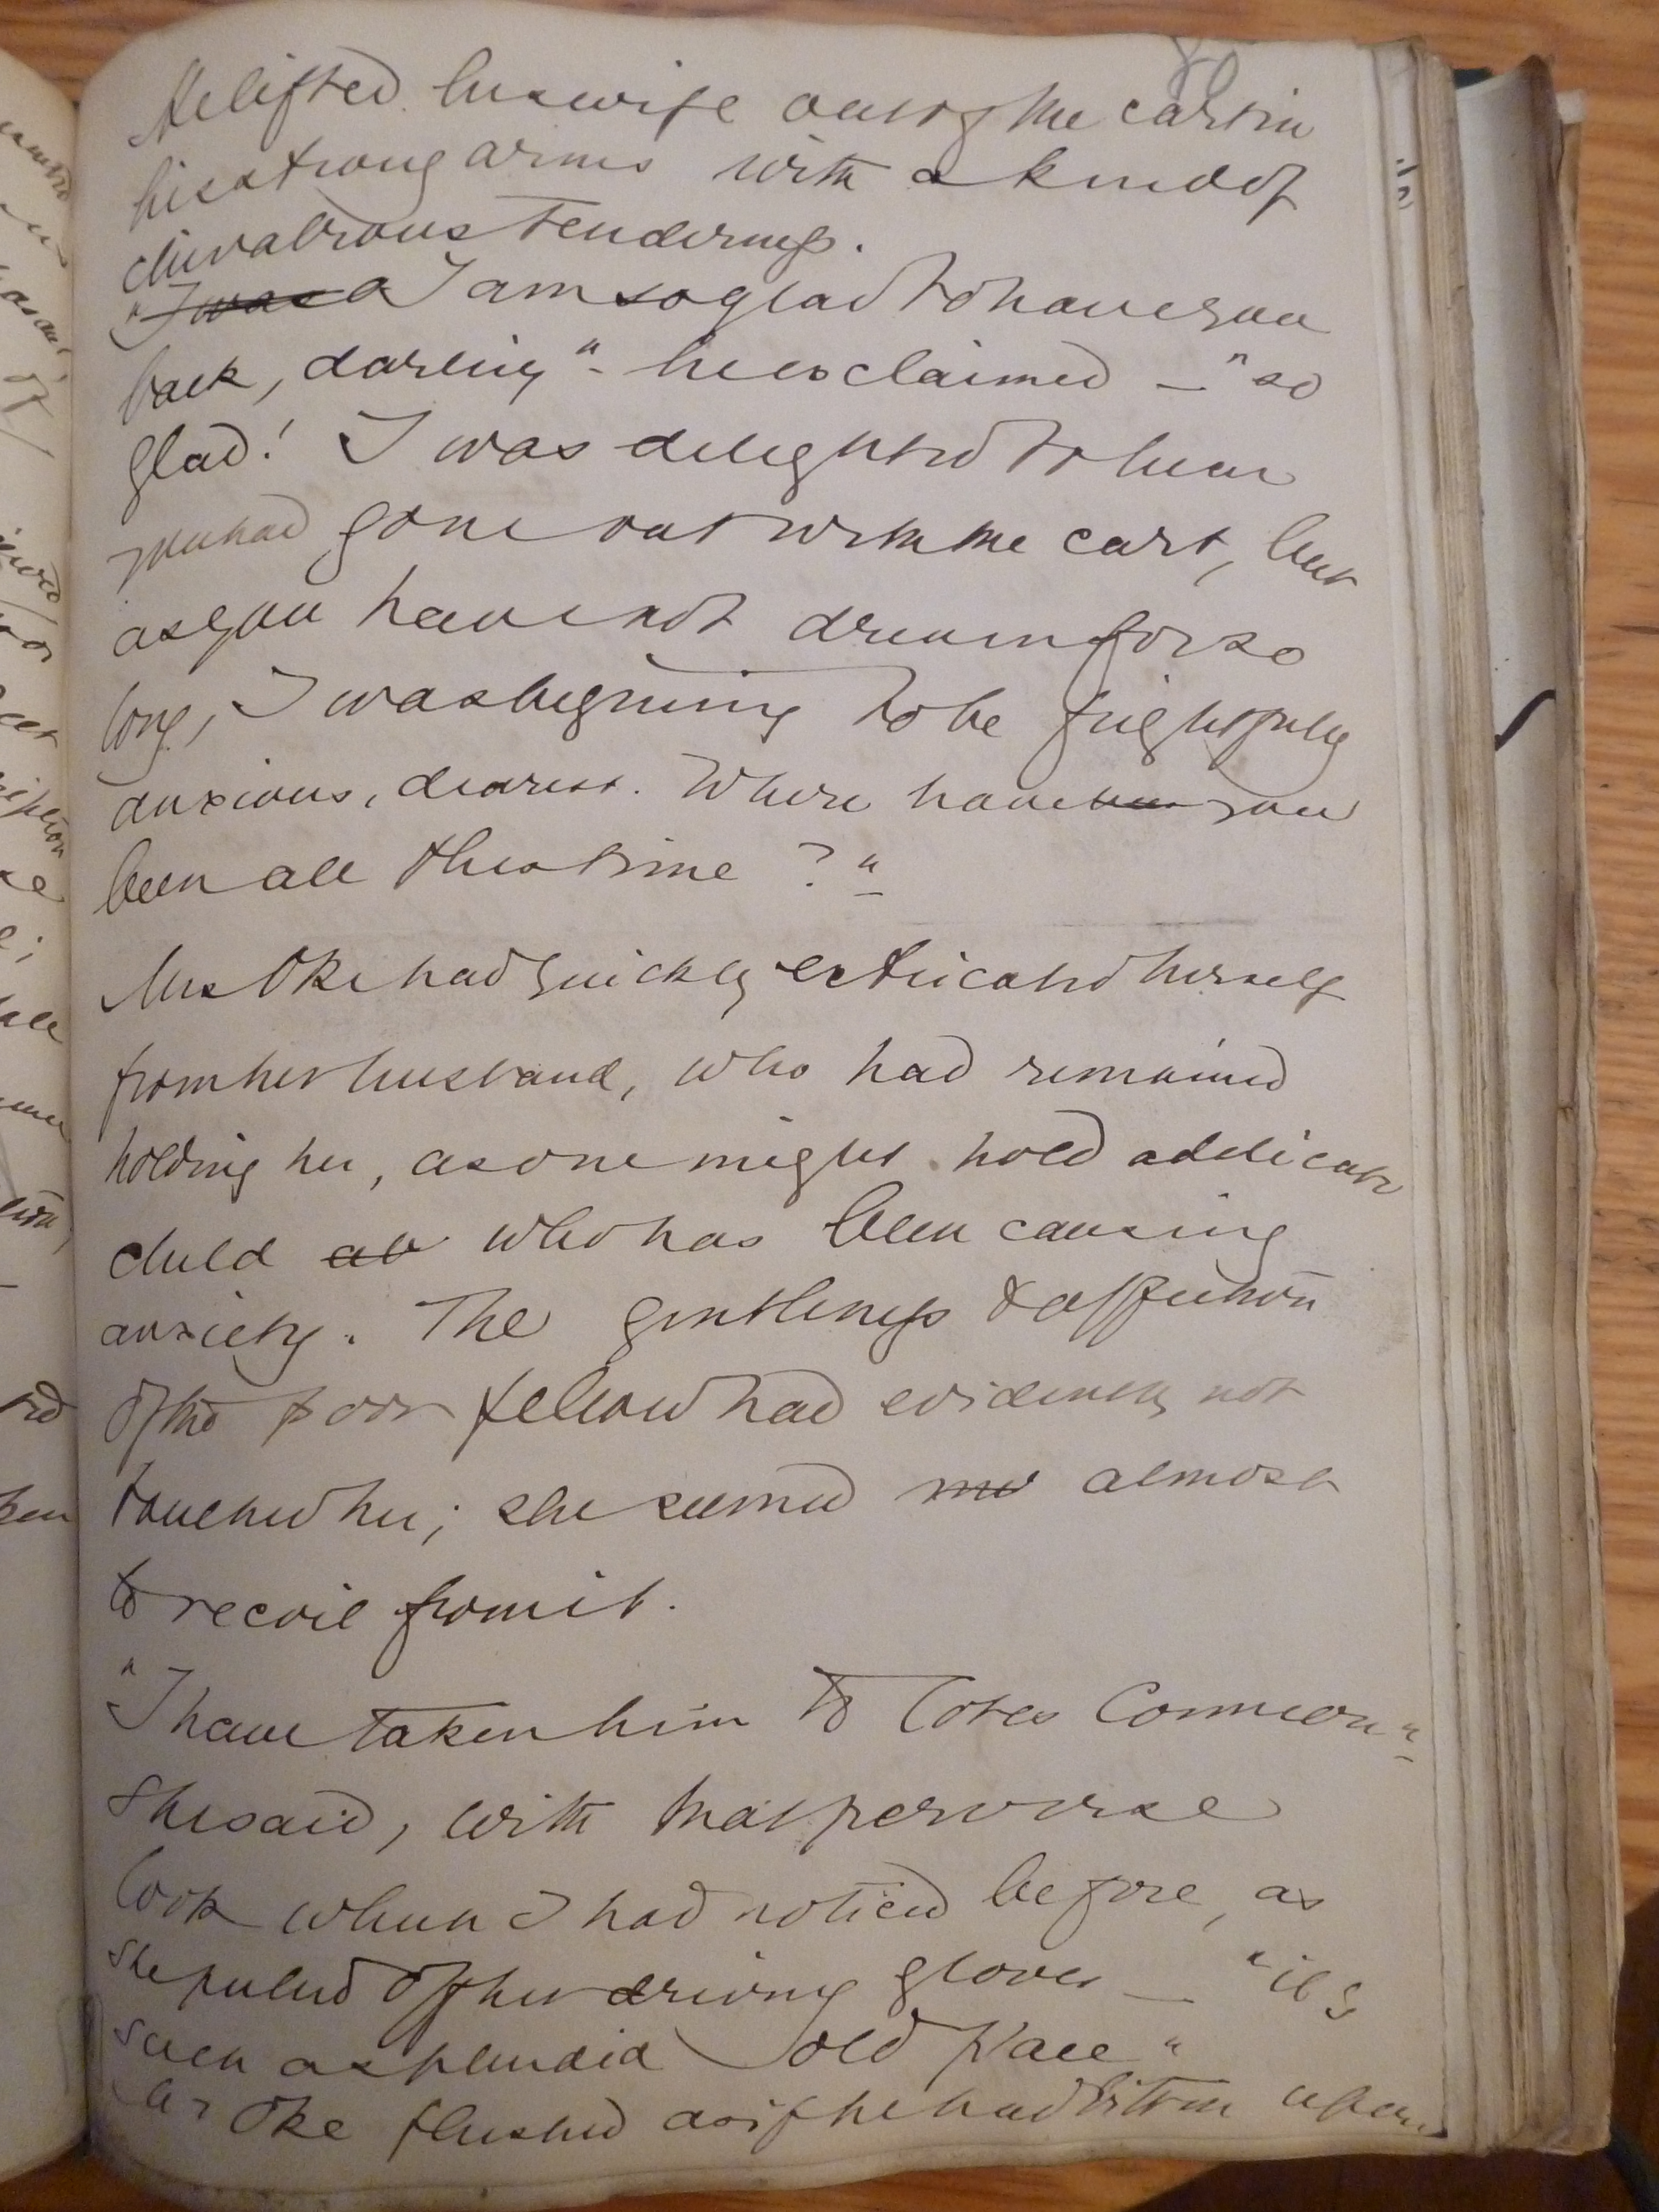 He lifted his wife out of the cart in
his strong arms with a kind of
chivalrous tenderness.
"I was a I am so glad to have you
back, darling" - he exclaimed — "so
glad! I was delighted to hear
you had gone out with the cart, but
as you have not driven for so
long, I was begining to be frightfully
anxious, dearest. Where have been you
been all this time?"
Mrs Oke had quickly extricated herself
from her husband, who had remained
holding her, as one might hold a delicate
child who has been causing
anxiety. The gentleness & affection
of the poor fellow had evidently not
touched her; she seemed almost
to recoil from it.
"I have taken him to Cotes Common"
she said, with that perverse
look which I had noticed before, as
she pulled off her driving gloves — "it's
such a splendid old place"
Mr Oke flushed as if he had bitten upon